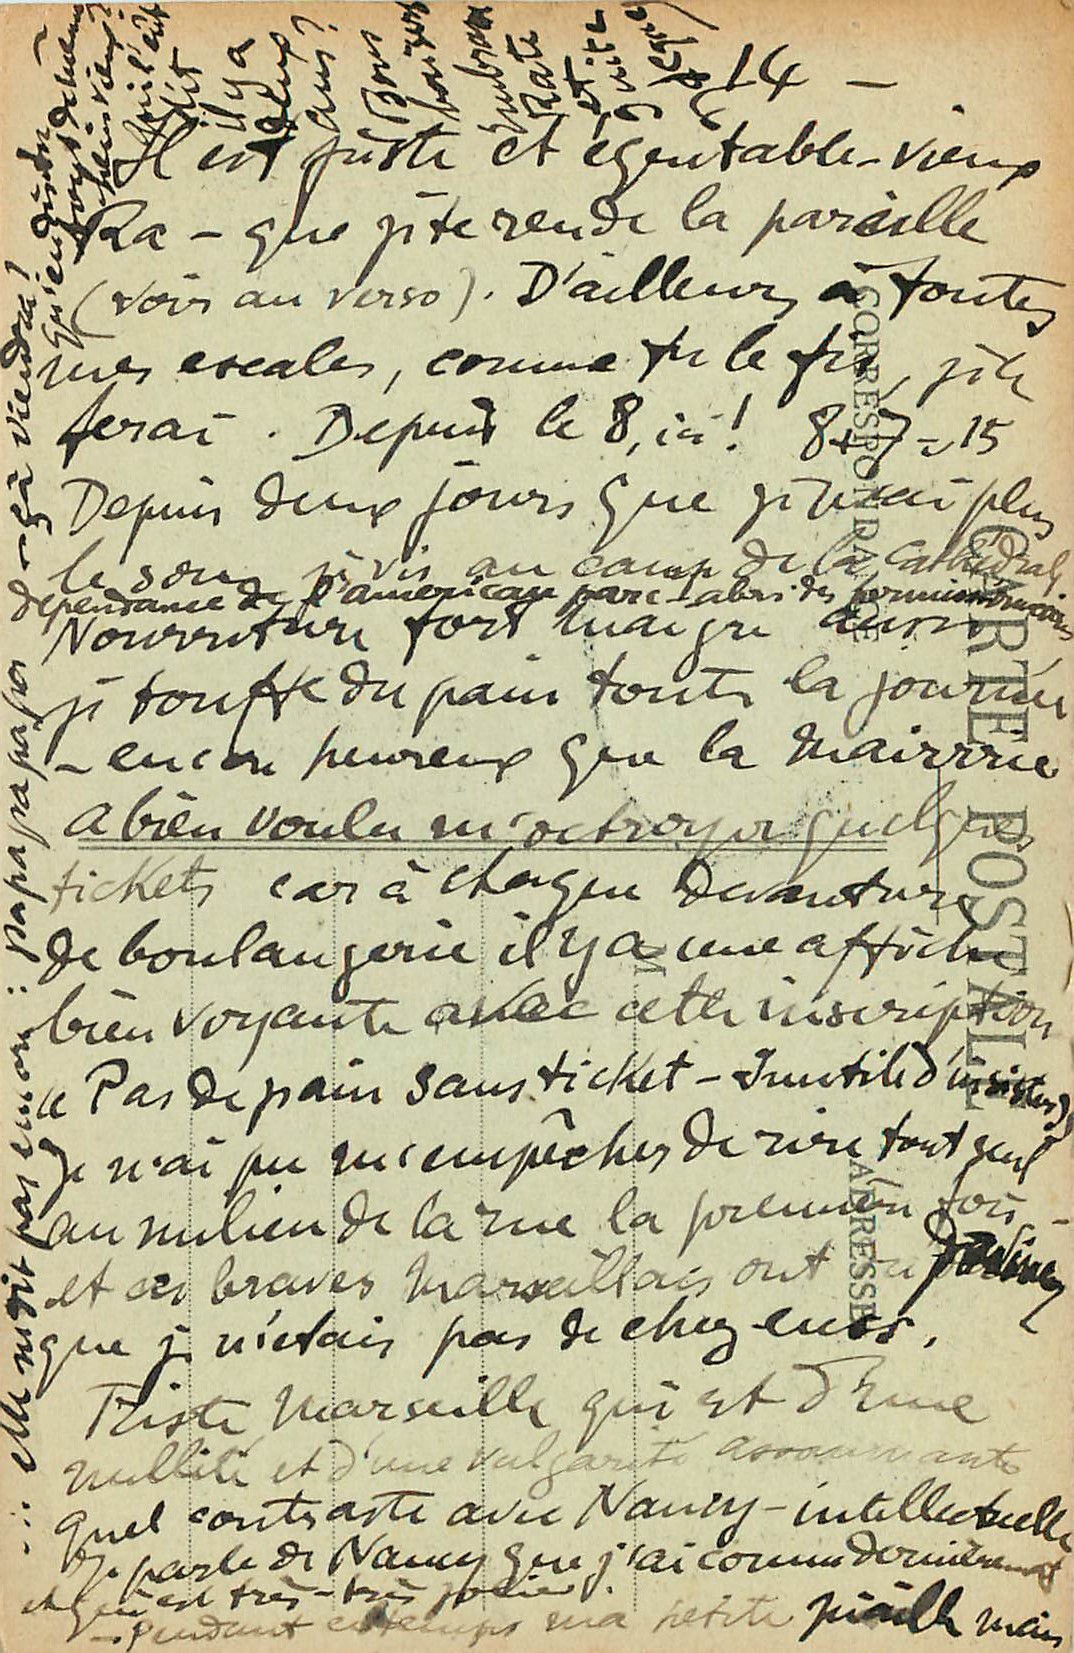 14 —
Il est juste et égeutable - vieux
Ra - que je te rende la pareille
(voir au verso). D'ailleurs à toutes
mes escales, comme tu le fis, je le
ferai. Depuis le 8, ici! 8+7=15
Depuis deux jours que je n'ai plus
le sou, je vis au camp de la Cathédrale
dépendance de l'américan parc - abri des permissionnaires
Nourriture fort maigre aussi
je touffe du pain toute la journée
- encore heureux que la Mairrrie
a bien voulu m'octroyer quelques
tickets car à chaque devanture
de boulangerie il y a une affiche
bien voyante avec cette inscription
« Pas de pain sans ticket - Inutile d'insister »
Je n'ai pu m'empêcher de rire tout seul
au milieu de la rue la première fois -
et ces braves Marseillais ont deviner
que je n'étais pas de chez euss.
Triste Marseille qui est d'une
nullité et d'une vulgarité assommante
Quel contraste avec Nancy - intellectuelle
Je parle de Nancy que j'ai connu dernièrement
et qui est très - très jolie.
- Pendant ce temps ma petite piaille mais
elle ne dit pas encore : papapapapa - ça viendra!
qu'en dis-tu
il y a
deux
ans?
Bons
baisers
Embrasse
Kate
et
écrire
vite
CARTE POSTALE
CORRESPONDANCE
ADRESSE